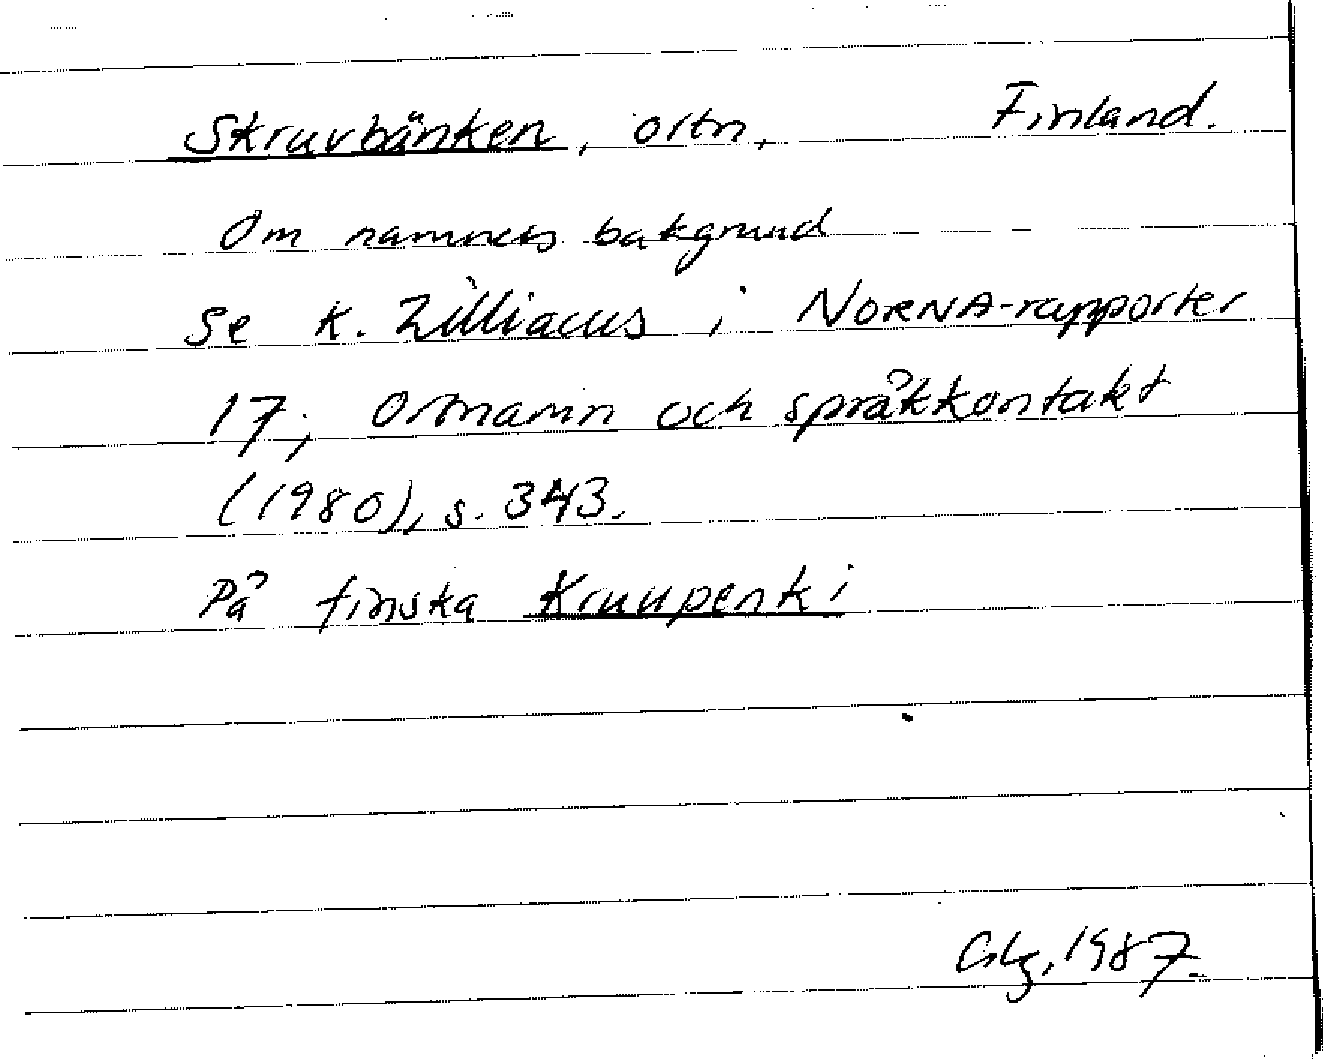 Skruvbänken, ortn. Finland.
Om namnets bakgrund
se K. Zilliacus i NORNA-rapporter
17, Ortnamn och språkkontakt
(1980), s. 343.
På finska Kruupenki
1987.